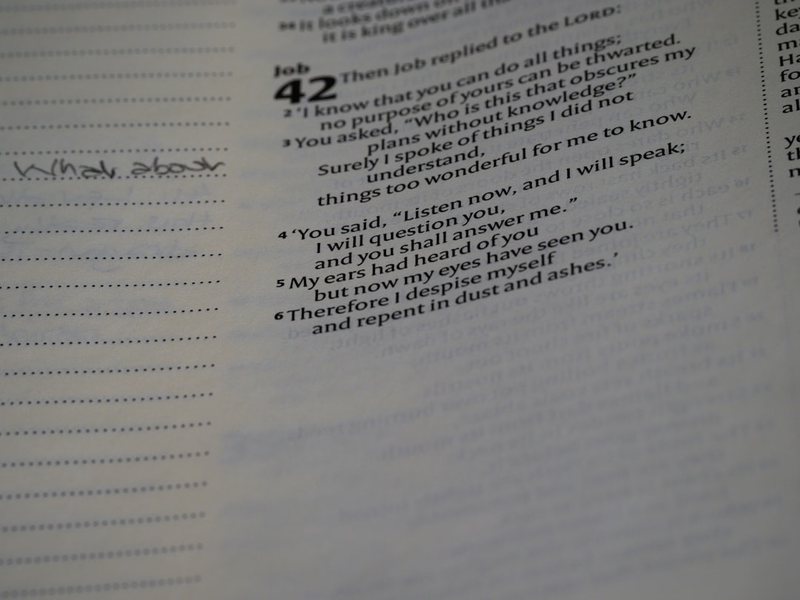 What about
a creature
34 It looks down on
it is king over all tha
Job
42 Then Job replied to the LORD:
2 'I know that you can do all things;
no purpose of yours can be thwarted.
3 You asked, "Who is this that obscures my
plans without knowledge?"
Surely I spoke of things I did not
understand,
things too wonderful for me to know.
4 'You said, "Listen now, and I will speak;
I will question you,
and you shall answer me."
5 My ears had heard of you
but now my eyes have seen you.
6 Therefore I despise myself
and repent in dust and ashes.'